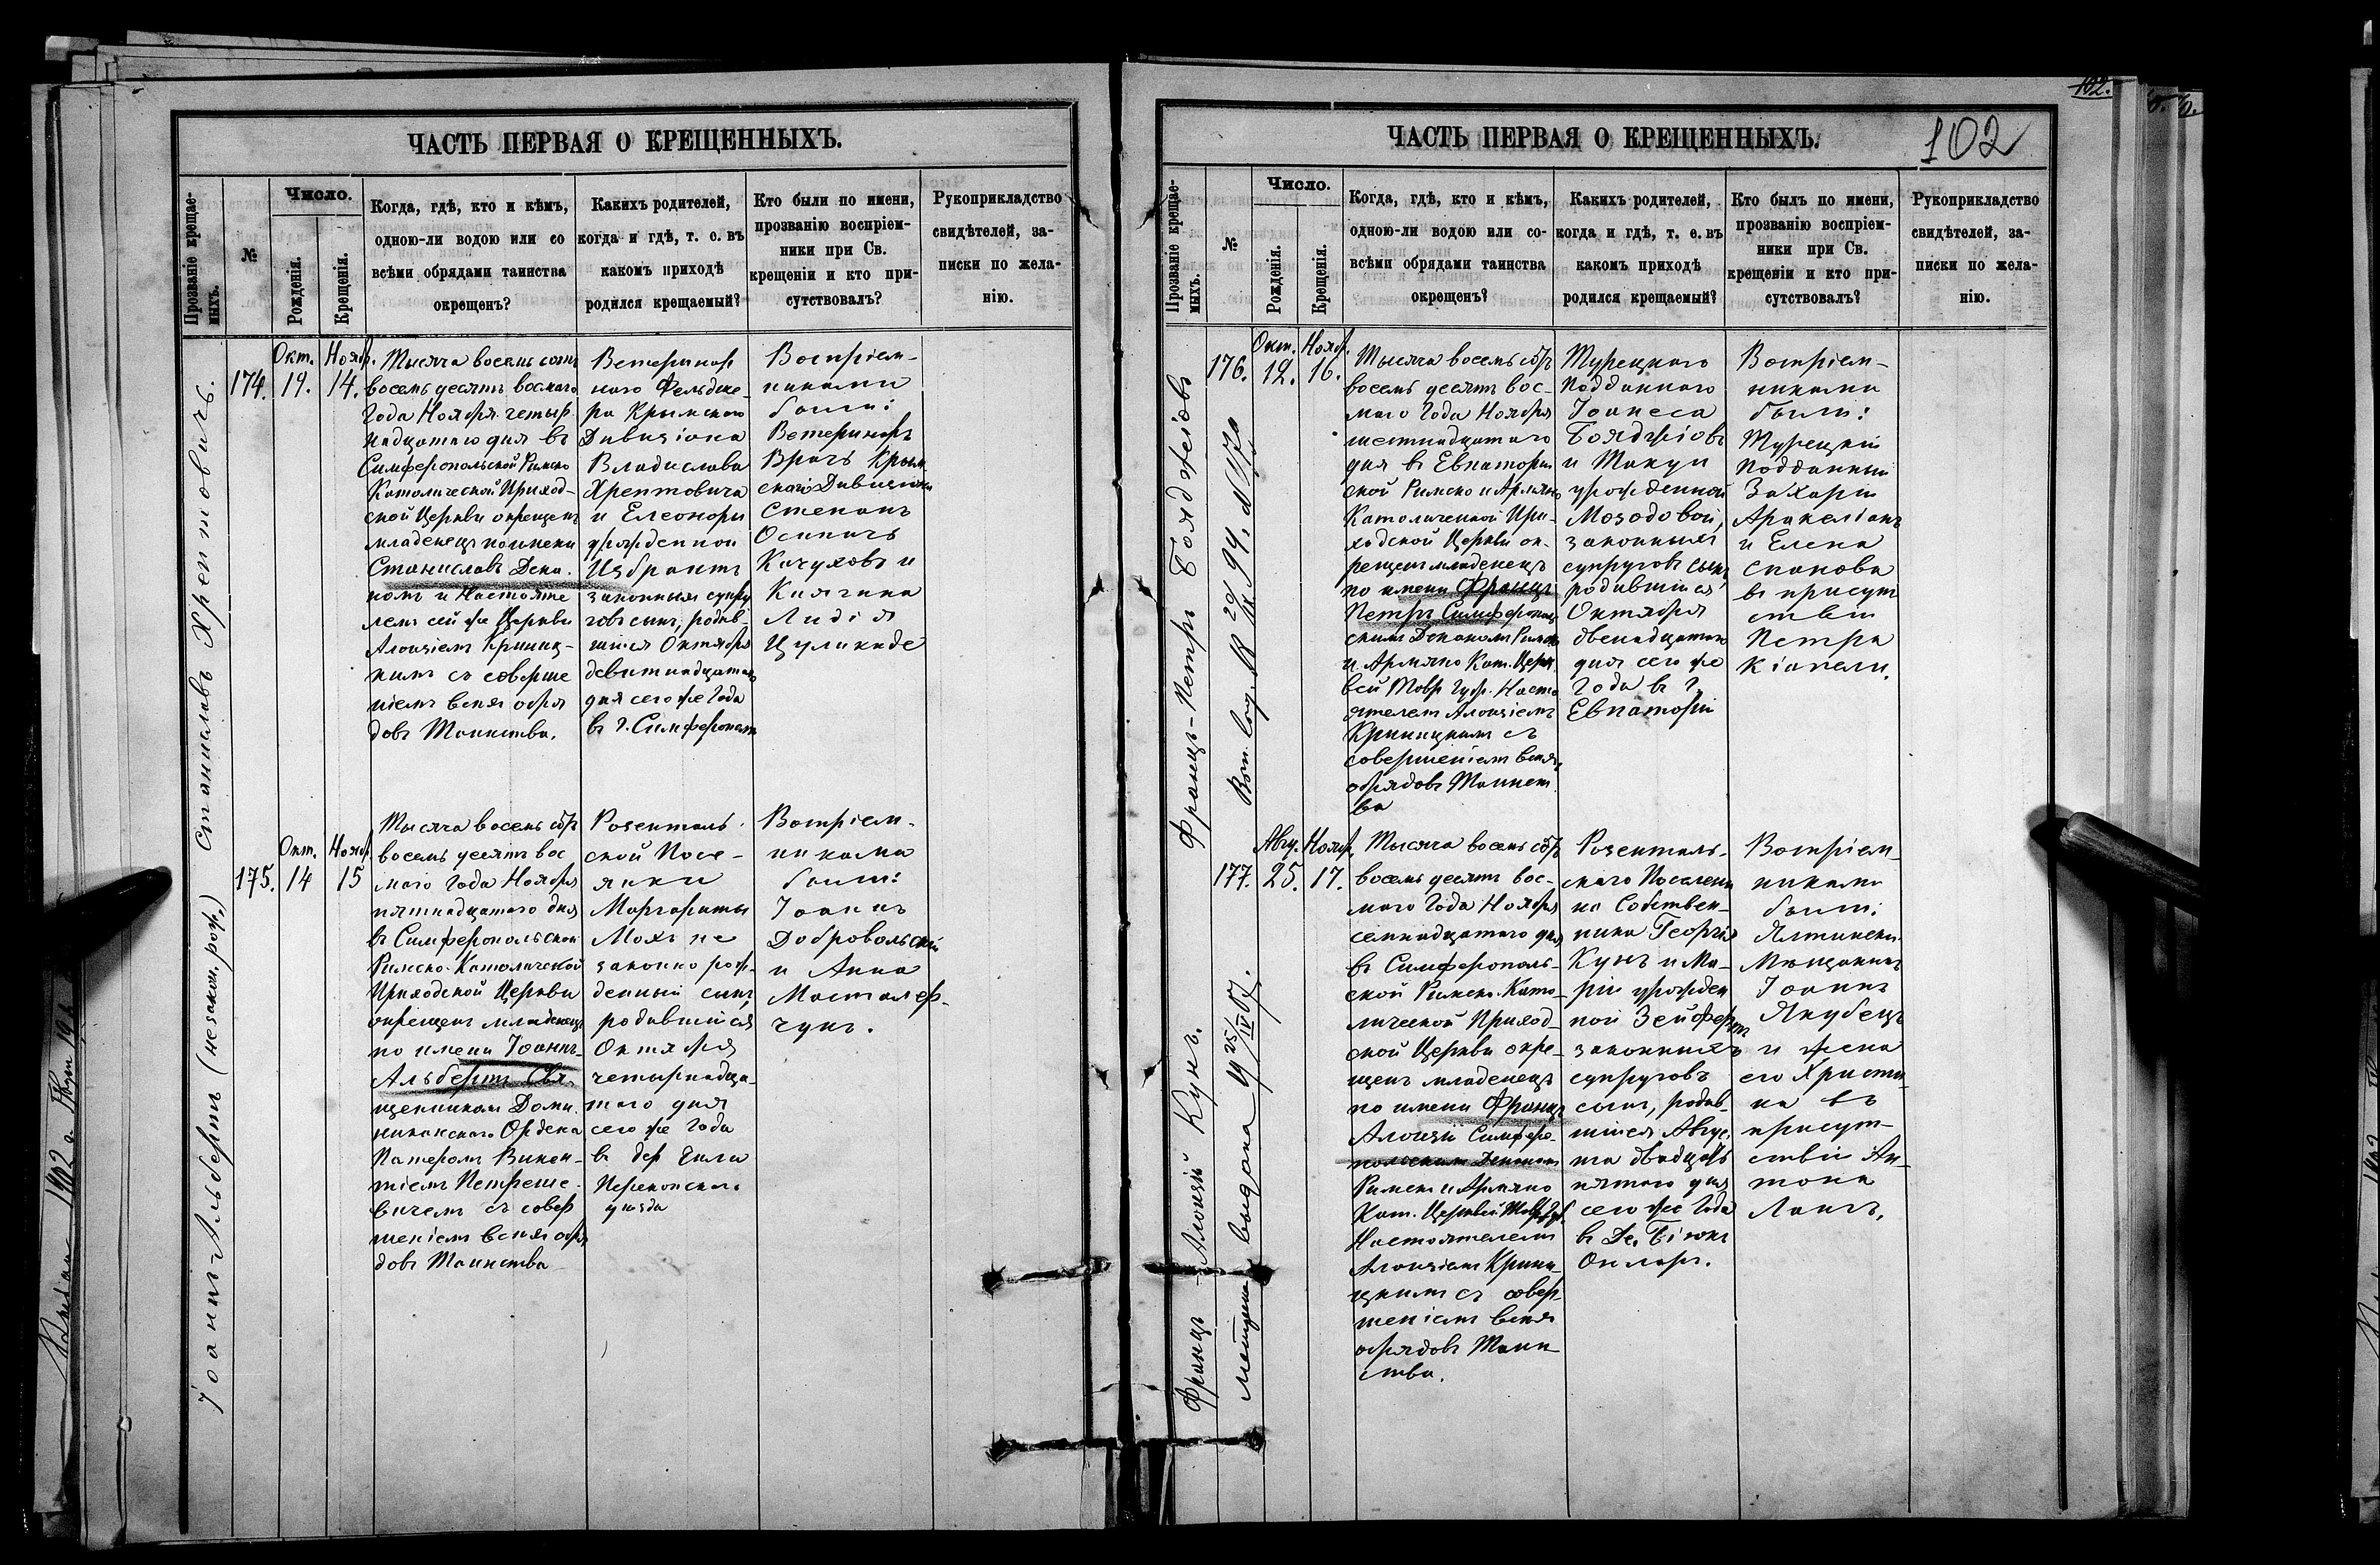 ЧАСТЬ ПЕРВАЯ О КРЕЩЕННЫХЪ.
Прозваніе крещае-
мыхъ.
№
Число.
Рожденія.
Крещенія.
Когда, гдѣ, кто и кѣмъ,
одною-ли водою или со
всѣми обрядами таинства
окрещенъ?
Какихъ родителей,
когда и гдѣ, т. е. въ
какомъ приходѣ
родился крещаемый?
Кто были по имени,
прозванію воспріем-
ники при Св.
крещеніи и кто при-
сутствовалъ?
Рукоприкладство
свидѣтелей, за-
писки по жела-
нію.
Станиславъ Хрептовичъ.
174.
Окт.
19.
Ноябр.
14.
Тысяча восемь сотъ
восемь десятъ восмаго
Года Ноября четыр
надцатаго дня въ
Симферопольской Римско
Католической Приход-
ской Церкви окрещенъ
младенецъ по имени
Станиславъ Дека-
номъ и Настояте
лемъ сей же Церкви
Алоизіемъ Криниц-
кимъ съ соверше
ніемъ всехъ обря
довъ Таинства.
Ветеринар
наго Фельдше-
ра Крымскаго
Дивизіона
Владислава
Хрептовича
и Елеоноры
урожденной
Избрантъ
законныхъ супру
говъ сынъ, родив-
шійся Октября
девятнадцатаго
дня сего же Года
въ г. Симферополѣ
Воспріем-
никами
были:
Ветеринаръ
Врачъ Крым
скаго Дивизіона
Степанъ
Осипичъ
Качуховъ и
Княгина
Лидія
Цулукиде
Іоаннъ-Альбертъ (незакон. рож.)
175.
Окт.
14
Ноябр.
15
Тысяча восемь сотъ
восемь десятъ вос
маго Года Ноября
пятнадцатаго дня
въ Симферопольской
Римско-Католической
Приходской Церкви
окрещенъ младенецъ
по имени Іоаннъ-
Альбертъ Свя-
щенникомъ Доми-
никанскаго Ордена
Патеромъ Викен-
тіемъ Петреше-
вичемъ съ совер
шеніемъ всехъ обря
довъ Таинства
Розенталь-
ской Посе-
лянки
Маргариты
Мохъ не
законно рож-
денный сынъ
родившійся
Октября
четырнадца-
таго дня
сего же Года
въ дер
Перекопскаго
уѣзда
Воспріем-
никами
были:
Іоаннъ
Добровольскій
и Анна
Мосталер-
чукъ.
102.
ЧАСТЬ ПЕРВАЯ О КРЕЩЕННЫХЪ.
102
Прозваніе крещае-
мыхъ.
№
Число.
Рожденія.
Крещенія.
Когда, гдѣ, кто и кѣмъ,
одною-ли водою или со-
всѣми обрядами таинства
окрещенъ?
Какихъ родителей,
когда и гдѣ, т. е. въ
какомъ приходѣ
родился крещаемый?
Кто былъ по имени,
прозванію воспріем-
ники при Св.
крещеніи и кто при-
сутствовалъ?
Рукоприкладство
свидѣтелей, за-
писки по жела-
нію.
Францъ-Петръ Бояджіовъ
176.
Окт.
12.
Ноябр.
16.
Тысяча восемь сотъ
восемь десятъ вос-
маго Года Ноября
шестнадцатаго
дня въ Евпатории
ской Римско и Армяно
Католической При-
ходской Церкви ок-
рещенъ младенецъ
по имени Францъ
Петръ Симферополь
скимъ Деканомъ Римско
и Армяно Кат. Церк
вей Тавр. Губ. Насто
ятелемъ Алоизіемъ
Криницкимъ съ
совершеніемъ всехъ
обрядовъ Таинст
ва
Турецкаго
Подданнаго
Іоанеса
Бояджіовъ
и Такуи
урожденной
Мозодовой,
законныхъ
супруговъ сынъ
родившійся
Октября
двенадцатаго
дня сего же
Года въ г.
Евпаторіи
Воспріем-
никами
были:
Турецкій
Подданный
Захарій
Аракеліанъ
и Елена
Спакова
въ присут
ствіи
Петра
Кіапели.
Францъ-Алоизій Кунъ.
177.
Авгу.
25.
Ноябр.
17.
Тысяча восемь сотъ
восемь десятъ вос-
маго Года Ноября
семнадцатаго дня
въ Симферополь-
ской Римско-Като-
лической Приход-
ской Церкви окре-
щенъ младенецъ
по имени Францъ
Алоизій Симферо-
польскимъ Деканомъ
Римско и Армяно
Кат. Церквей Тавр. Губ.
Настоятелемъ
Алоизіемъ Крини-
цкимъ съ совер-
шеніемъ всехъ
обрядовъ Таин-
ства.
Розенталь-
скаго Поселени
на Собствен-
ника Георгія
Кунъ и Ма-
ріи урожден
ной Зейфертъ
законныхъ
супруговъ
сынъ, родив-
шійся Авгус-
та двадцать
пятаго дня
сего же Года
въ Де. Біюкъ
Онларъ.
Воспріем-
никами
были:
Ялтинскій
Мѣщанинъ
Іоаннъ
Якубецъ
и жена
его Христи-
на въ
присут-
ствіи Ан-
тона
Лангъ.